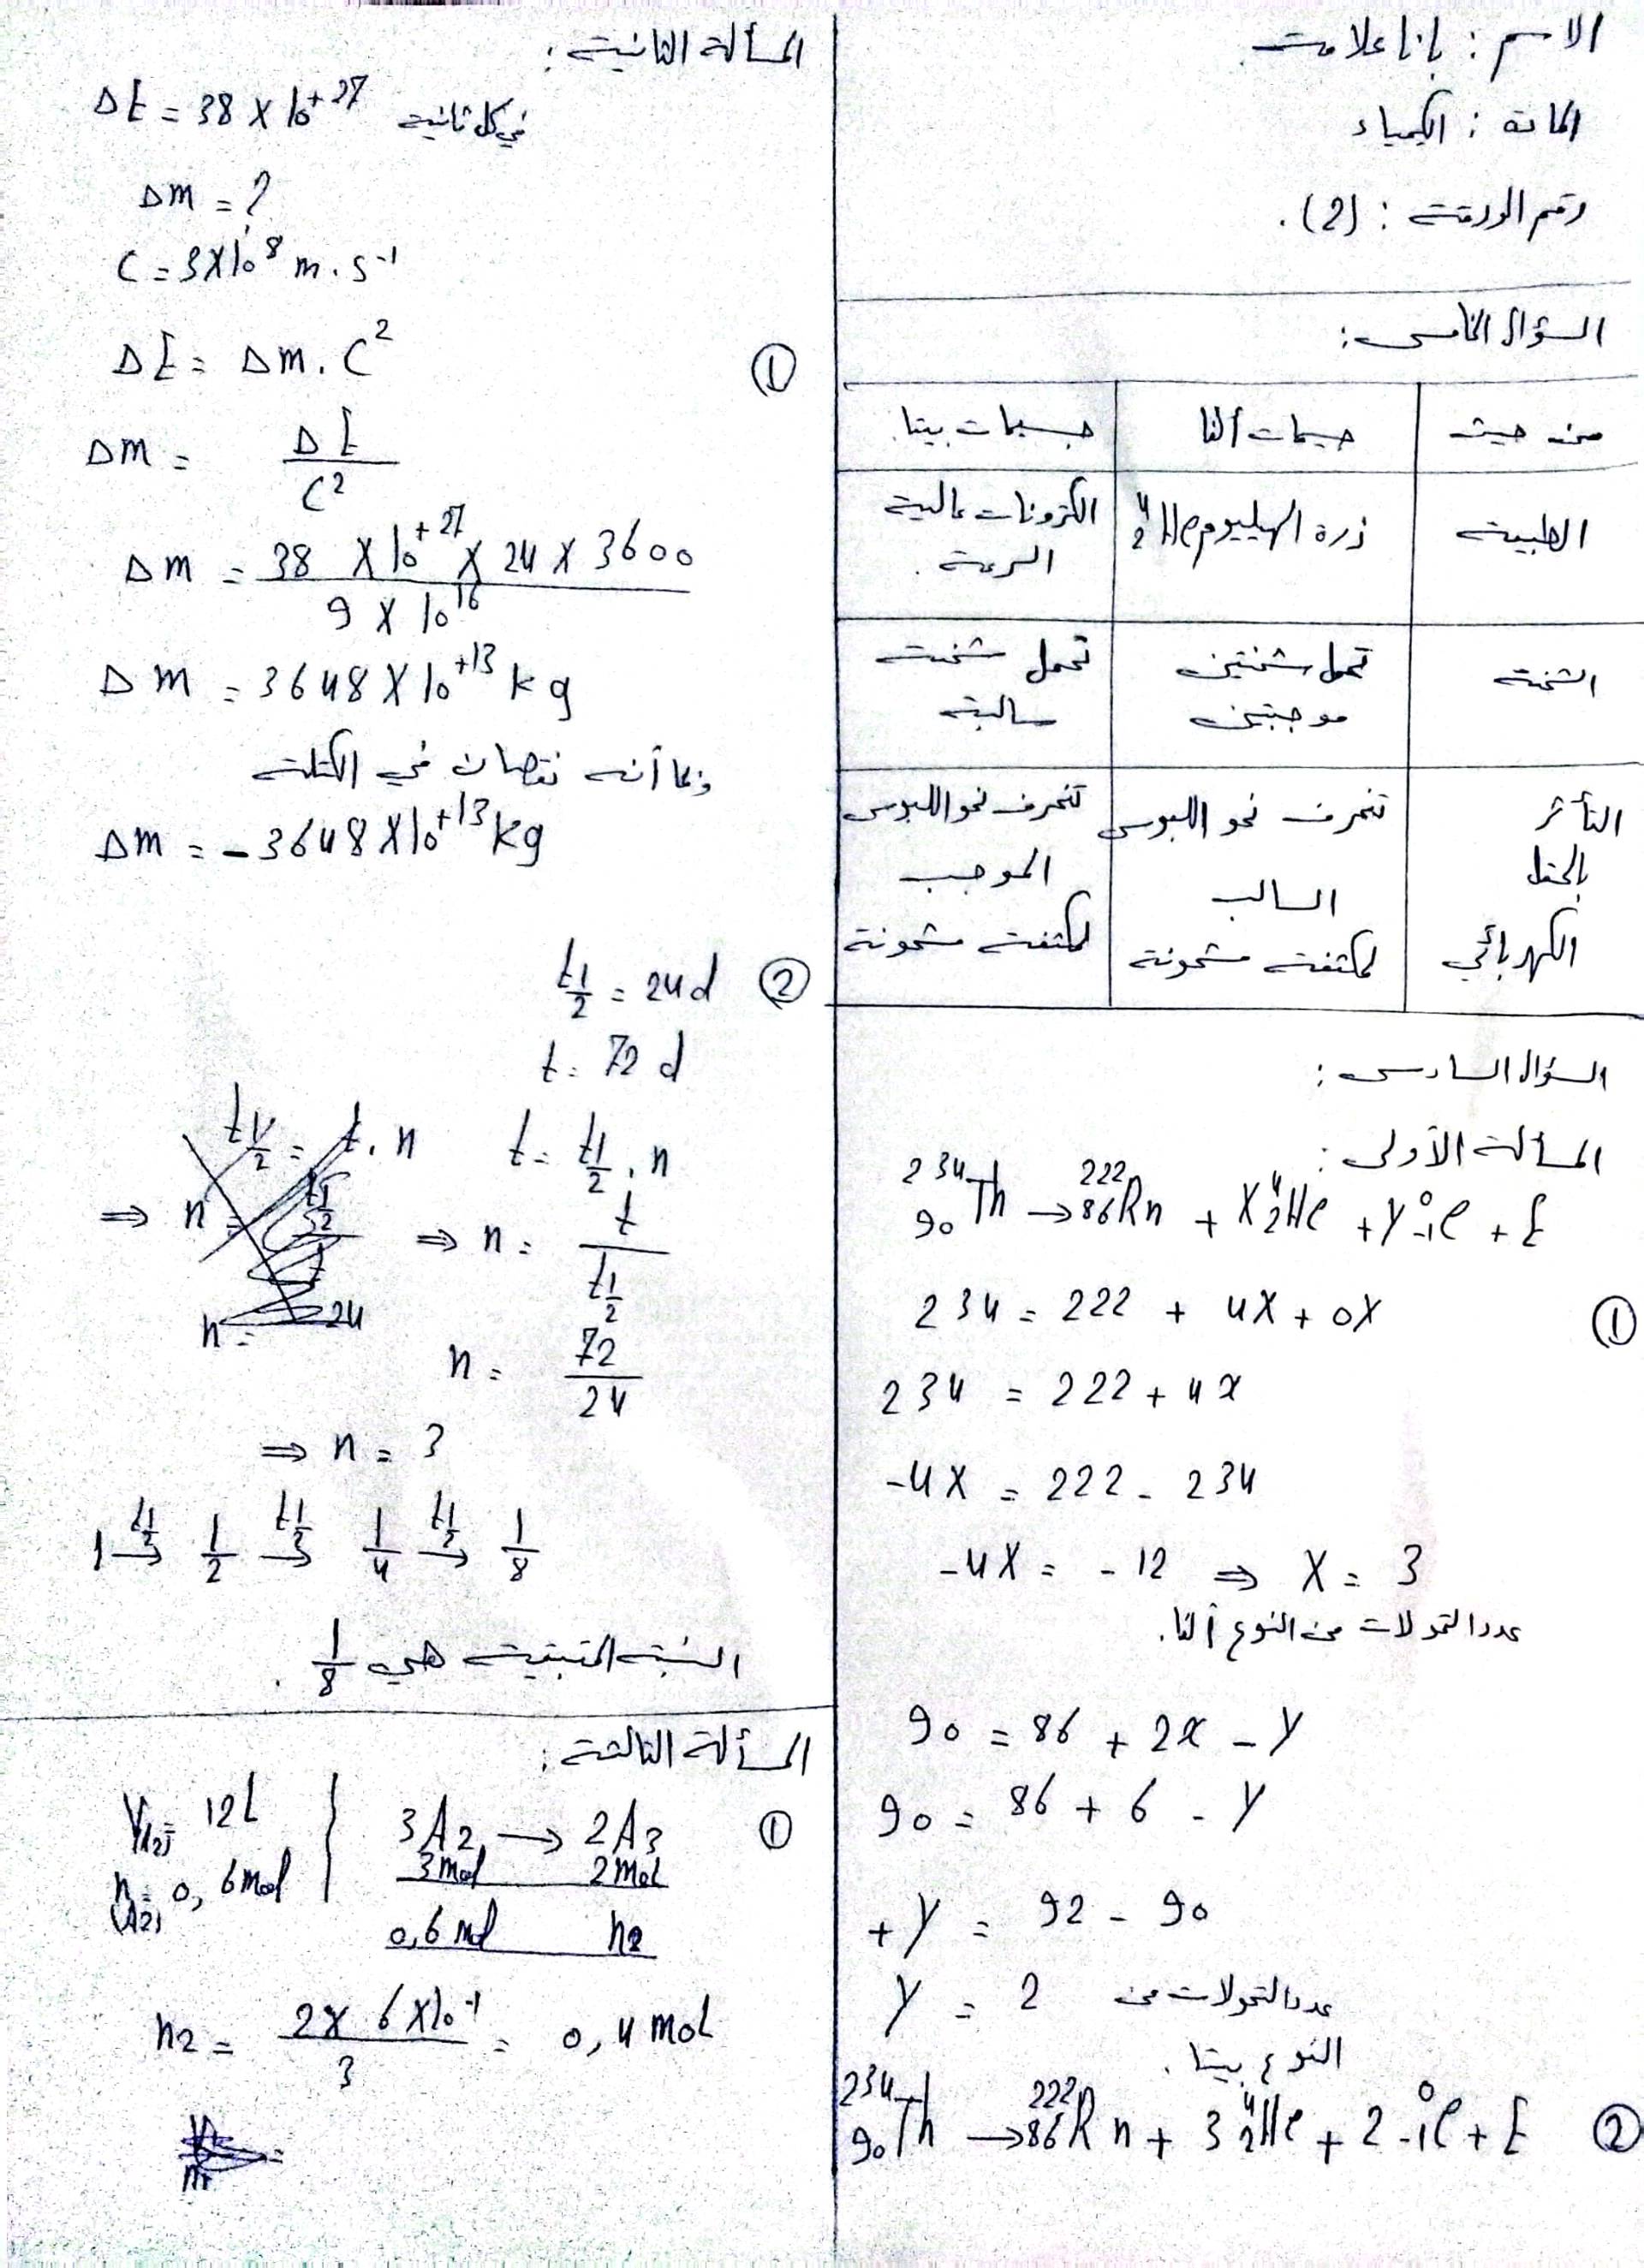 الاسم : بانا علامت
المادة : الكيمياء
رقم الورقة : (2).
السؤال الخامس :
من حيث | جسيمات ألفا | جسيمات بيتا.
الطبيعة | ذرة الهيليوم ⁴₂He | الكترونات عالية السرعة .
الشحنة | تحمل شحنتين موجبتين | تحمل شحنة سالبة
التأثر بالحقل الكهربائي | تنحرف نحو اللبوس السالب لمكثفة مشحونة | تنحرف نحو اللبوس الموجب لمكثفة مشحونة
السؤال السادس :
المسألة الأولى :
²³⁴₉₀Th → ²²²₈₆Rn + X ⁴₂He + Y ⁰₋₁e + E
①
234 = 222 + 4X + 0X
234 = 222 + 4x
-4X = 222 - 234
-4X = -12 ⇒ X = 3
عدد التحولات من النوع ألفا.
90 = 86 + 2x - Y
90 = 86 + 6 - Y
+Y = 92 - 90
Y = 2 عدد التحولات من
النوع بيتا .
② ²³⁴₉₀Th → ²²²₈₆Rn + 3 ⁴₂He + 2 ⁰₋₁e + E
المسألة الثانية :
ΔE = 38 × 10⁺²⁷ في كل ثانية
Δm = ?
C = 3×10⁸ m.s⁻¹
① ΔE = Δm . C²
Δm = ΔE / C²
Δm = 38 × 10⁺²⁷ × 24 × 3600 / 9 × 10¹⁶
Δm = 3648 × 10⁺¹³ kg
وبما أنه نقصان في الكتلة
Δm = - 3648 × 10⁺¹³ kg
② t½ = 24d
t = 72 d
t = t½ . n
⇒ n = t / t½
n = 72 / 24
⇒ n = 3
1 →(t½) 1/2 →(t½) 1/4 →(t½) 1/8
النسبة المتبقية هي 1/8 .
المسألة الثالثة :
V(A2) = 12L
n(A2) = 0,6mol
① 3A₂ → 2A₃
3mol 2mol
0,6 mol n₂
n₂ = 2 × 6×10⁻¹ / 3 = 0,4 mol